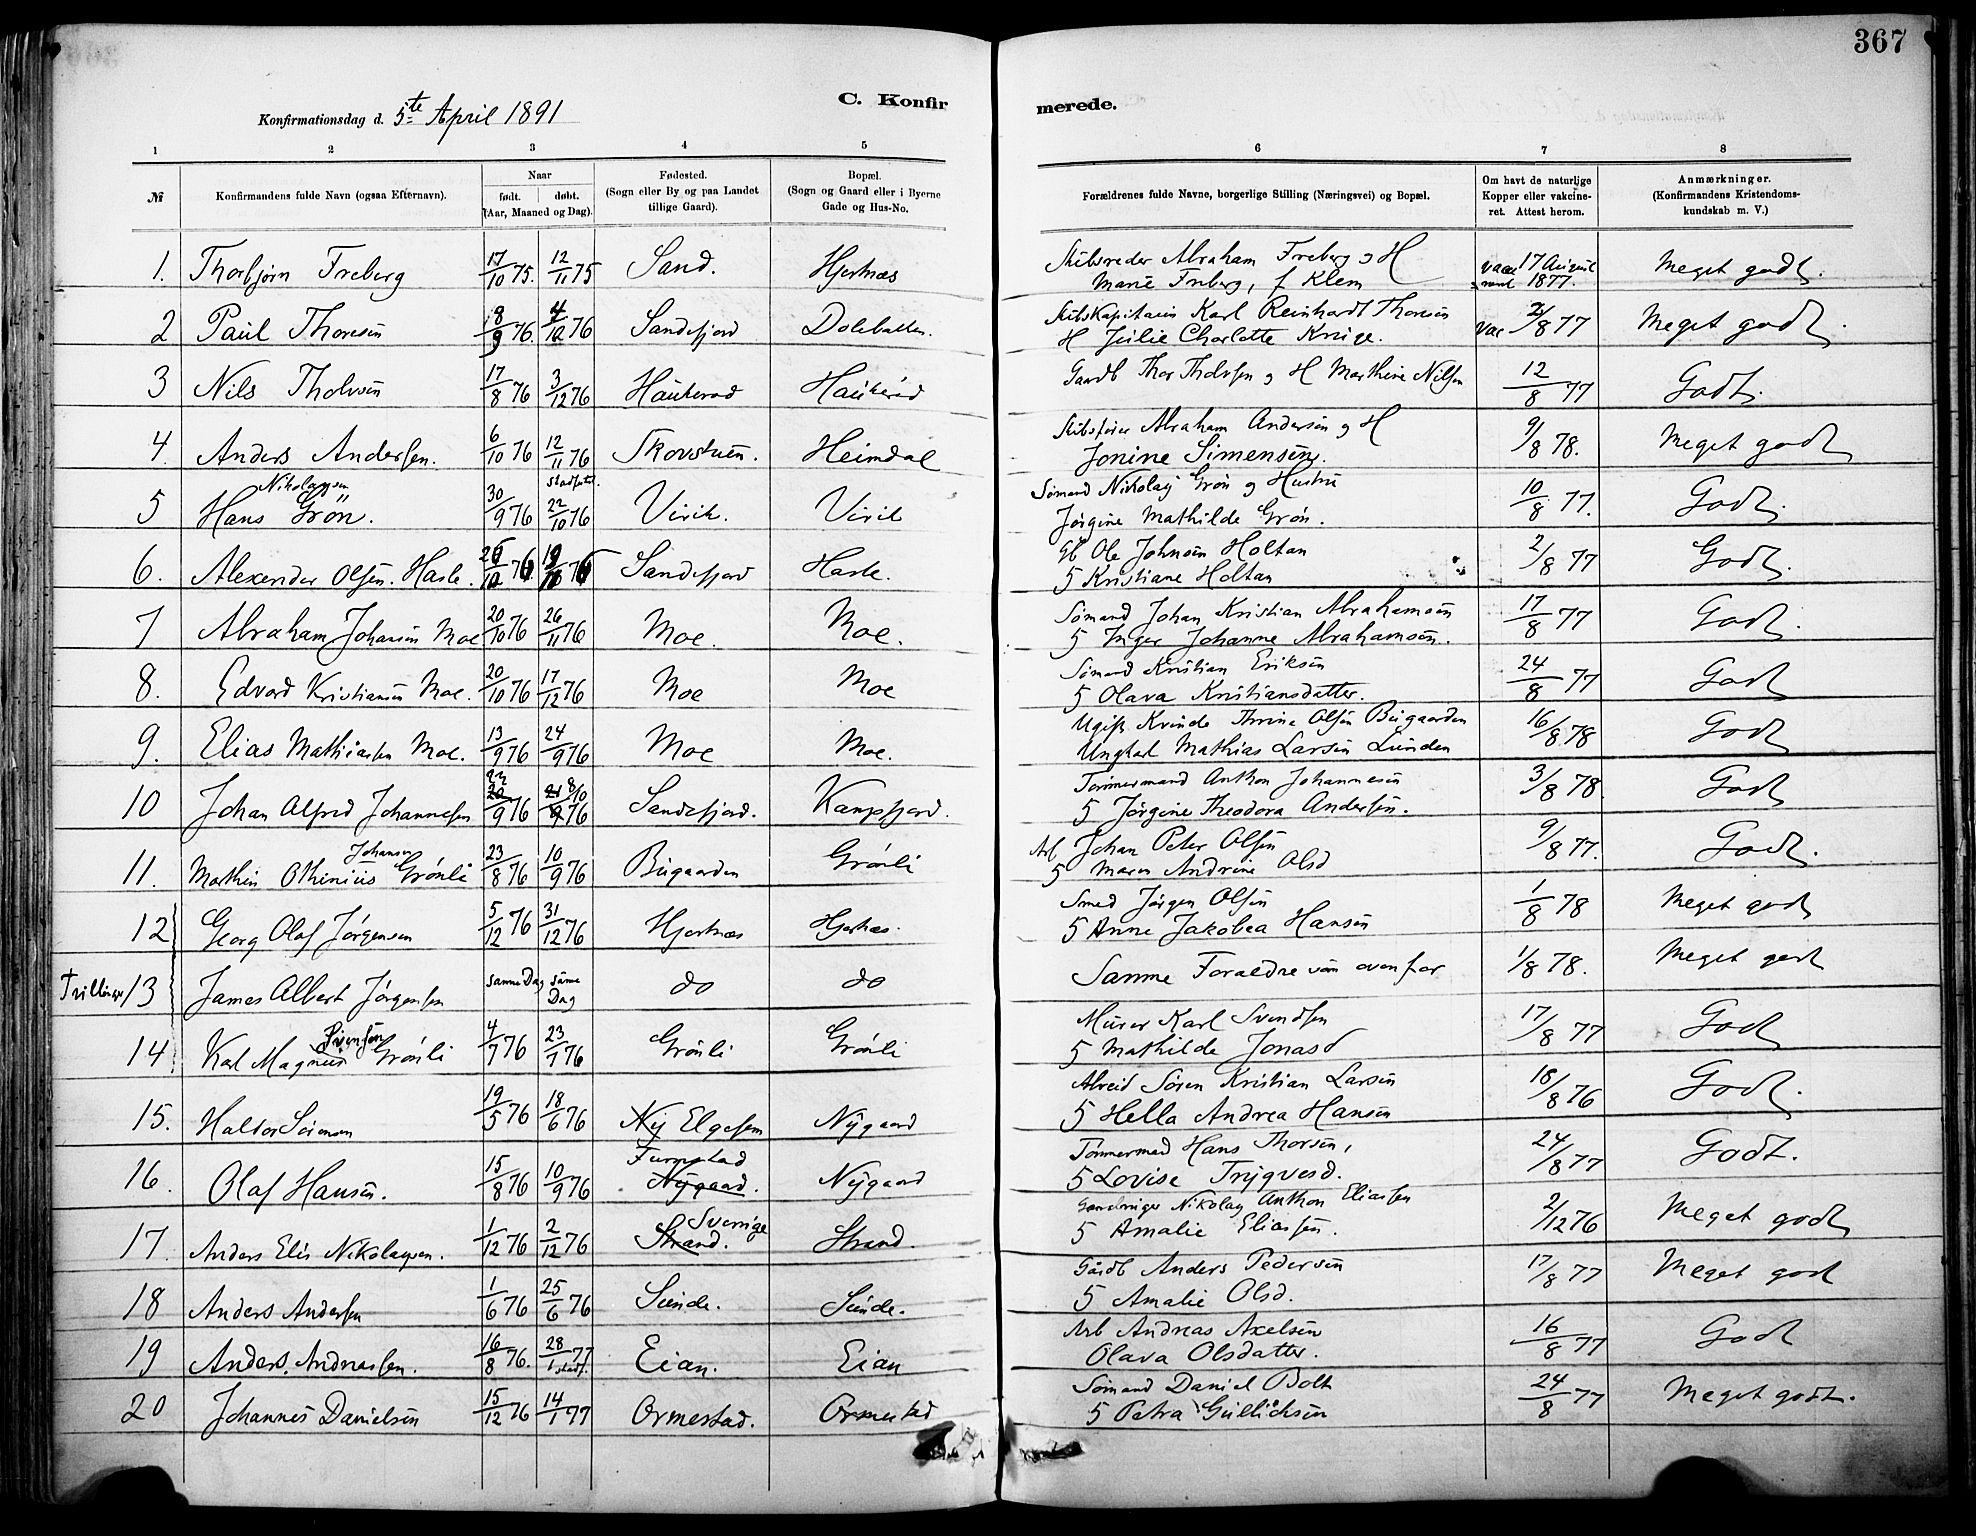 367
C. Konfirmerede.
Konfirmationsdag d. 5te April 1891
1 2 3 4 5 6 7 8
№ Konfirmandens fulde Navn (ogsaa Efternavn). Naar født. døbt. (Aar, Maaned og Dag). Fødested. (Sogn eller By og paa Landet tillige Gaard). Bopæl. (Sogn og Gaard eller i Byerne Gade og Hus-No. Forældrenes fulde Navne, borgerlige Stilling (Næringsvei) og Bopæl. Om havt de naturlige Kopper eller vakcineret. Attest herom. Anmærkninger. (Konfirmandens Kristendomskundskab m. V.)
1. Thorbjørn Freberg 17/10 75. 12/11 75 Sand. Hjertnæs Skibsreder Abraham Freberg og H Marie Freberg, f Klem vacc 17 August 1877. Meget godt.
2 Paul Thoresen 8/9 76. 4/12 76 Sandefjord Skibskapitain Karl Reinhardt Thoresen H Julie Charlotte Kruge. vac 2/8 77 Meget godt.
3 Nils Tholvsen 17/8 76 3/12 76 Haukerød Haukerød Gaardb Thor Tholvsen og H Marthine Nilsen 12/8 77 Godt.
4. Anders Andersen. 6/10 76 12/11 76 Skovstuen. Heimdal Abraham Andersen og H Jonine Simensen. 9/8 78. Meget godt
5 Hans Nikolaysen Grøn. 30/9 76 22/10 76 Virik. Virik Sømand Nikolay Grøn og Hustru Jørgine Mathilde Grøn. 10/8 77. Godt.
6. Alexander Olsen. Hasle. Sandefjord Hasle. Gb Ole Johnsen Holtan 5 Kristiane Holtan 2/8 77 Godt.
7 Abraham Johansen Moe 20/10 76 26/11 76 Moe. Moe. Sømand Johan Kristian Abrahamsen 5 Inger Johanne Abrahamsen. 17/8 77 Godt.
8. Edvard Kristiansen Moe. 20/10 76 17/12 76 Moe Moe Sømand Kristian Eriksen 5 Olava Kristiansdatter. 24/8 77 Godt
9. Elias Mathiassen Moe. 13/9 76 24/9 76 Moe Moe. Ugift Kvinde Thrine Olsen Bugaarden Ungkarl Mathias Larsen Lunden 16/8 78 Godt
10 Johan Alfred Johannesen 9 76 76 Sandefjord. Kampfjord. Tømmermand Anthon Johannesen 5 Jørgine Theodora Andersen. 3/8 78. Godt
11. Marthin Othinius Johansen Grønli 23/8 76 10/9 76 Bugaarden Grønli Arb Johan Peter Olsen 5 Maren Andrine Olsd 9/8 77. Godt.
12 Georg Olaf Jørgensen 5/12 76 31/12 76 Hjertnæs Hjertnæs. Smed Jørgen Olsen 5 Anne Jakobea Hansen 1/8 78 Meget godt
Trillinger 13 James Albert Jørgensen samme Dag samme Dag do do Samme Foræeldre som ovenfor 1/8 78. Meget godt
14 Karl Magnus Svensen Grønli 4/7 76 23/7 76 Grønli Grønli Murer Karl Svendsen 5 Mathilde Jonasd 17/8 77 Godt
15. Halvor Sørensen 19/5 76 18/6 76 Elgesem Nygaard Arbeid Søren Kristian Larsen 5 Hella Andrea Hansen 18/8 76 Godt.
16. Olaf Hansen. 15/8 76 10/9 76 Furustad Nygaard. Nygaard Tømmermd Hans Thorsen, 5 Lovise Trygvesd. 24/8 77 Godt.
17. Anders Elis Nikolaysen. 1/12 76 2/12 76 Sverige Strand. Strand. Nikolay Anthon Eliassen 5 Amalie Eliassen. 2/12 76 Meget godt
18 Anders Andersen 1/6 76 25/6 76 Sunde. Sunde. Gårdb Anders Pedersen 5 Amalie Olsd. 17/8 77 Meget godt
19 Anders. Andreassen. 16/8 76. 28/1 77 Eian. Eian Arb Andreas Axelsen Olava Olsdatter. 16/8 77 Godt
20 Johannes Danielsen 15/12 76 14/1 77 Ormestad. Ormestad Sømand Daniel Bolt 5 Petra Gullichsen 24/8 77 Meget godt.